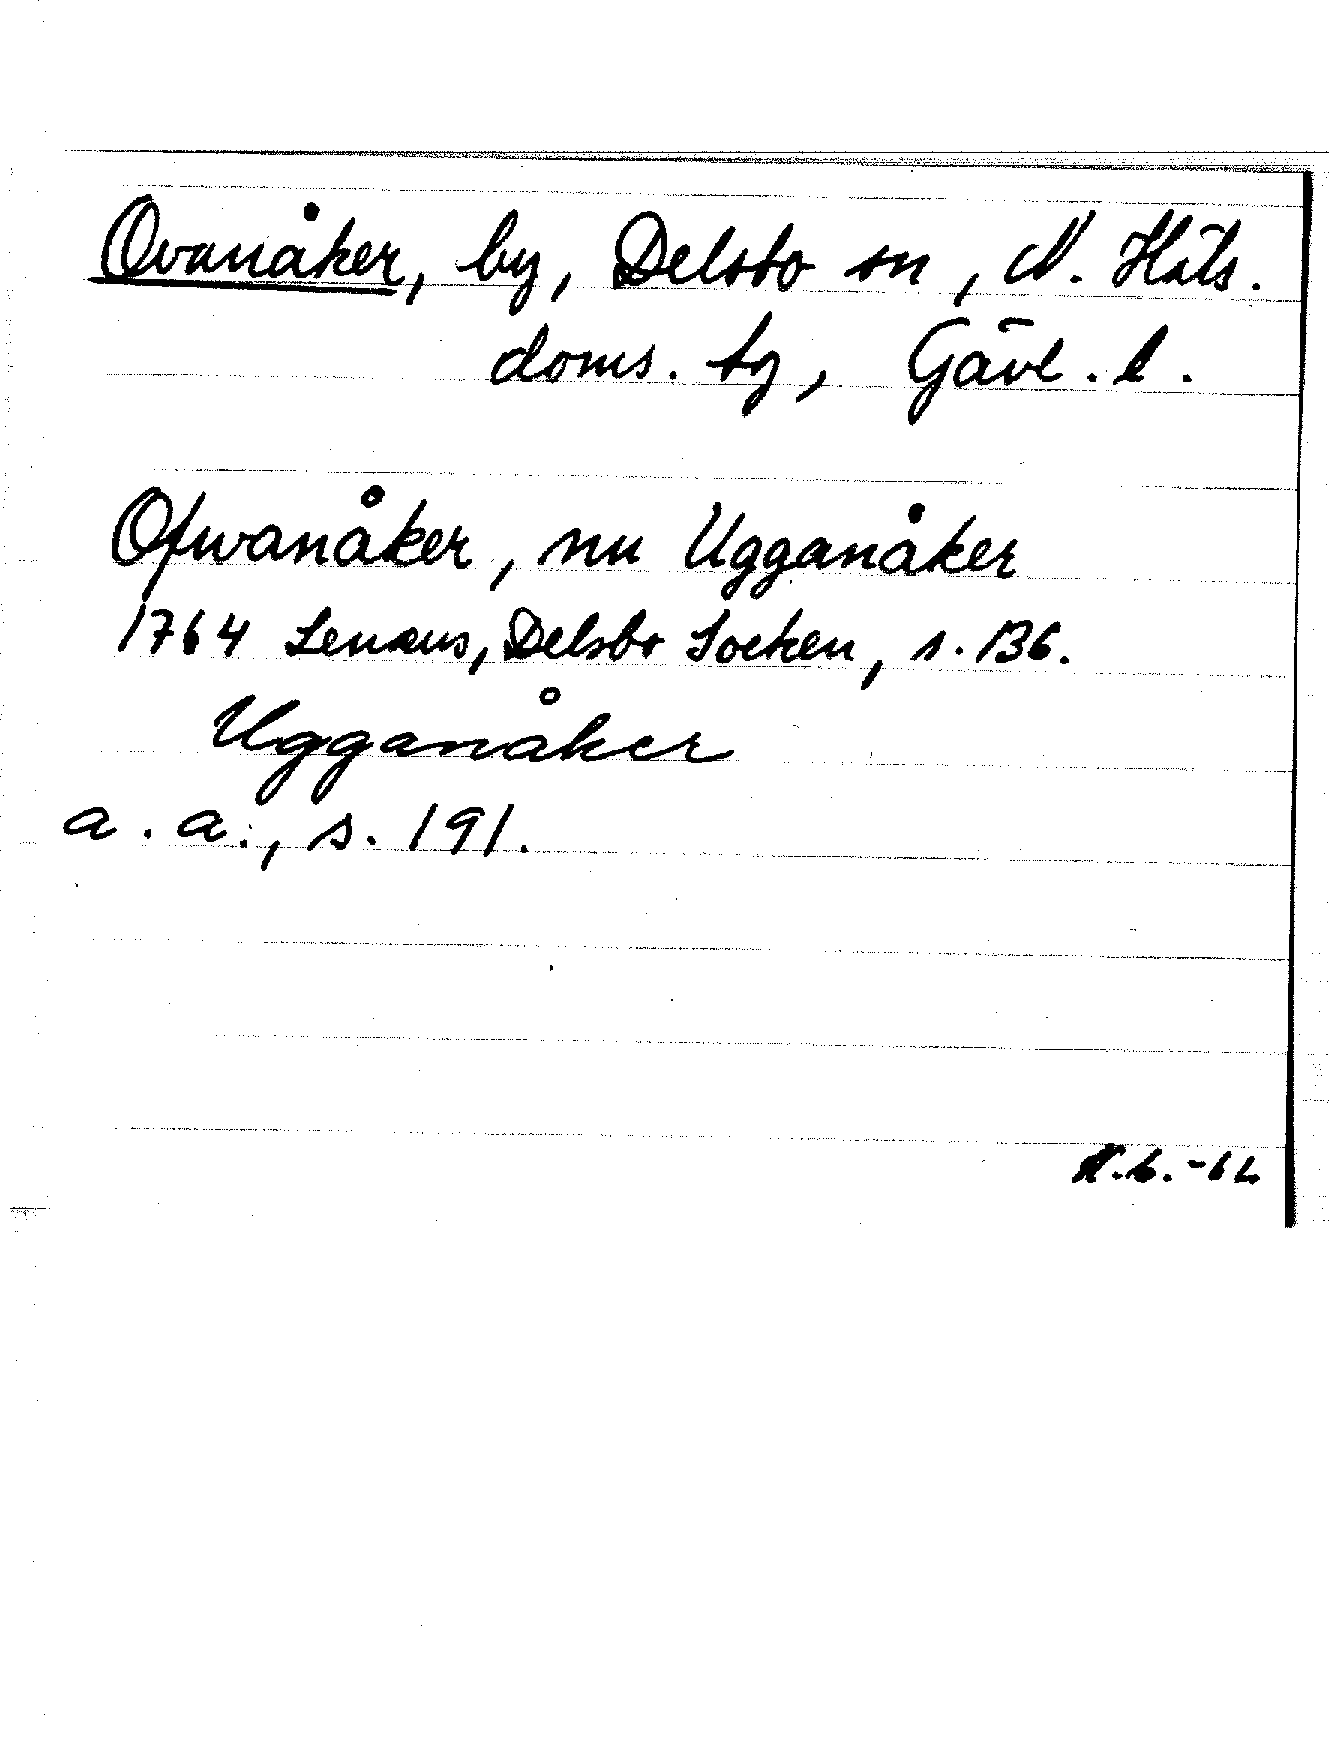 Ovanåker, by, Delsbo sn, N. Häls.
doms. tg, Gävl. l.
Ofwanåker, nu Ugganåker
1764 Lenæus, Delsbo Socken, s. 136.
Ugganåker
a. a., s. 191.